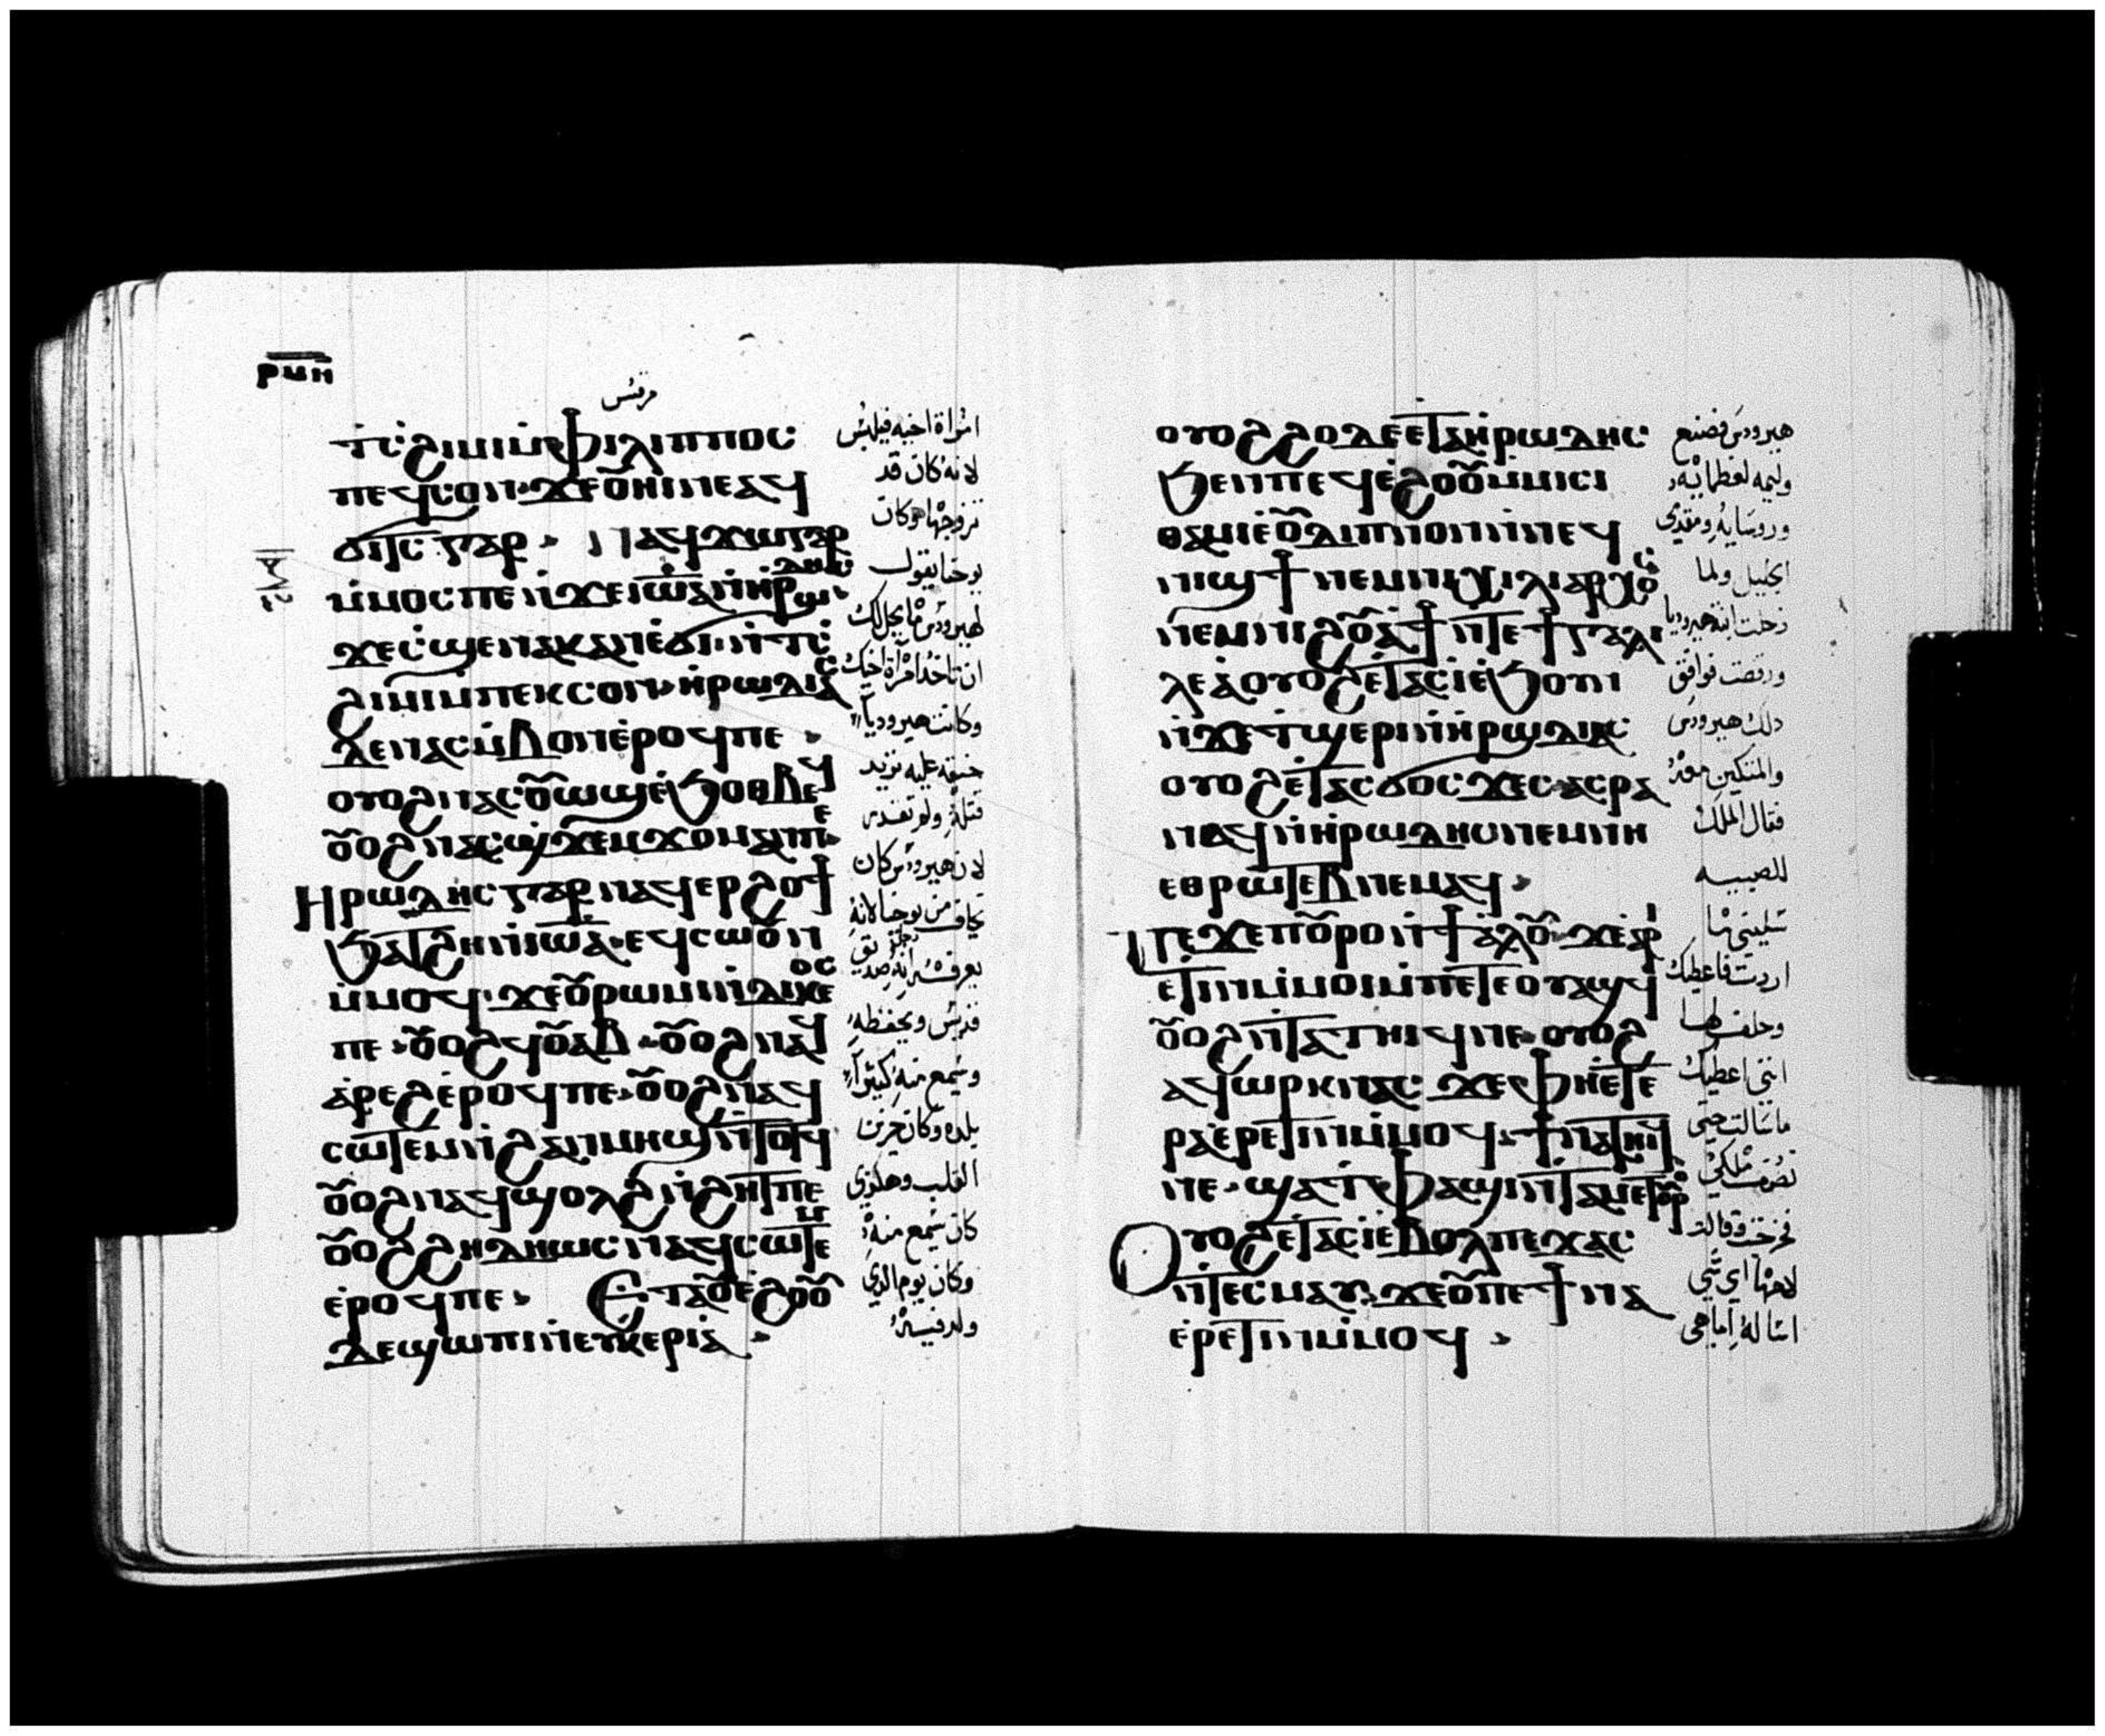 ⲣⲙⲏ
مرقس
ϯⲥϩⲓⲙⲓ ⲙ̀ⲫⲓⲗⲓⲡⲡⲟⲥ
ⲡⲉϥⲥⲟⲛ ϫⲉ ⲟⲩⲏⲓ ⲛⲉⲁϥ
ϭⲓⲧⲥ ⲅⲁⲣ ⲛⲁϥϫⲱ ⲅⲁⲣ
ⲙ̀ⲙⲟⲥ ⲡⲉ ⲛ̀ϫⲉ ⲓⲱⲁ ⲛ̀ⲏⲣⲱⲇⲏⲥ
ϫⲉ ⲥϣⲉ ⲛⲁⲕ ⲁⲛ ⲉ̀ϭⲓ ⲛ̀ϯⲥ
ϩⲓⲙⲓ ⲙ̀ⲡⲉⲕⲥⲟⲛ ⲏⲣⲱⲇⲓⲁⲥ
ⲇⲉ ⲛⲁⲥⲙ̀ⲃⲟⲛ ⲉ̀ⲣⲟϥ ⲡⲉ
ⲟⲩⲟϩ ⲛⲁⲥⲟⲩⲱϣ ⲉ̀ϧⲟⲑⲃⲉϥ
ⲟⲩⲟϩ ⲛⲁⲥϣϫⲉⲙϫⲟⲙ ⲁⲛ ⲡⲉ
Ⲏⲣⲱⲇⲏⲥ ⲅⲁⲣ ⲛⲁϥⲉⲣϩⲟϯ
ϧⲁⲧϩⲏ ⲛ̀ⲓⲱⲁ ⲉϥⲥⲱⲟⲩⲛ
ⲙ̀ⲙⲟϥ ϫⲉ ⲟⲩⲣⲱⲙⲓ ⲛ̀ⲇⲓⲕⲉⲟⲥ
ⲡⲉ ⲟⲩⲟϩ ϥⲟⲩⲁⲃ ⲟⲩⲟϩ ⲛⲁϥ
ⲁ̀ⲣⲉϩ ⲉ̀ⲣⲟϥ ⲡⲉ ⲟⲩⲟϩ ⲛⲁϥ
ⲥⲱⲧⲉⲙ ⲛ̀ϩⲁⲛⲙⲏϣ ⲛ̀ⲧⲟⲧϥ
ⲟⲩⲟϩ ⲛⲁϥϣⲟⲗϩ ⲛ̀ϩⲏⲧ ⲡⲉ
ⲟⲩⲟϩ ϩⲏⲇⲏⲱⲥ ⲛⲁϥⲥⲱⲧⲉⲙ
ⲉ̀ⲣⲟϥ ⲡⲉ Ⲉⲧⲁⲟⲩⲉϩⲟⲟⲩ
ⲇⲉ ϣⲱⲡⲓ ⲛ̀ⲉⲩⲕⲉⲣⲓⲁ
امراة اخيه فيلبس
لانه كان قد
تزوجها وكان
يوحنا يقول
لهيرودس ما يحل لك
ان تاخد امراة اخيك
وكانت هيروديا
حنقه عليه تريد
قتله ولم تقدر
لان هيرودس كان
يخاف من يوحنا لانه
يعرفه انه رجل صديق
قديس ويحفظه
وسمع منه كثيرا
القلب وهكذى
كان يسمع منه
وكان يوم الذي
ⲟⲩⲟϩ ϩⲟⲇⲉ ⲉⲧⲁ ⲏⲣⲱⲇⲏⲥ
ϧⲉⲛ ⲡⲉϥⲉ̀ϩⲟⲟⲩⲙ̀ⲙⲓⲥⲓ
ⲑⲁⲙⲓⲉ̀ ⲟⲩⲇⲓⲡⲛⲟⲛ ⲛ̀ⲛⲉϥ
ⲛⲓϣϯ ⲛⲉⲙ ⲛⲓⲭⲓⲗⲓⲁⲣⲭⲟⲥ
ⲛⲉⲙ ⲛⲓϩⲟⲩⲁϯ ⲛⲧⲉ ϯⲅⲁⲗⲓ
ⲗⲉⲁ̀ ⲟⲩⲟϩ ⲉⲧⲁⲥⲓ̀ ⲉ̀ϧⲟⲩⲛ
ⲛ̀ϫⲉ ⲧϣⲉⲣⲓ ⲛ̀ⲏⲣⲱⲇⲓⲁⲥ
ⲟⲩⲟϩ ⲉⲧⲁⲥϭⲟⲥϫⲉⲥ ⲁⲥⲣⲁ
ⲛⲁϥ ⲛ̀ⲏⲣⲱⲇⲏⲥ ⲛⲉⲙ ⲛⲏ
ⲉⲑⲣⲱⲧⲉⲃ ⲛⲉⲙⲁϥ
ⲡⲉϫⲉ ⲡⲟⲩⲣⲟ ⲛ̀ϯⲁ̀ⲗⲟⲩ ϫⲉ ⲁⲣⲓ
ⲉ̀ⲧⲓⲛ ⲙ̀ⲙⲟⲓ ⲙ̀ⲡⲉⲧⲉⲟⲩⲁϣϥ
ⲟⲩⲟϩ ⲛ̀ⲧⲁⲧⲏⲓϥ ⲛⲉ ⲟⲩⲟϩ
ⲁϥⲱⲣⲕ ⲛⲁⲥ ϫⲉ ⲫⲏ ⲉⲧⲉ
ⲣⲁⲉⲣⲉ̀ⲧⲓⲛ ⲙ̀ⲙⲟϥ ϯⲛⲁⲧⲏⲓϥ
ⲛⲉ ϣⲁ ⲧ̀ⲫⲁϣⲓ ⲛ̀ⲧⲁⲙⲉⲧⲟⲩⲣⲟ
Ⲟⲩⲟϩ ⲉⲧⲁⲥⲓ̀ ⲉ̀ⲃⲟⲗ ⲡⲉϫⲁⲥ
ⲛ̀ⲧⲉⲥⲙⲁⲩ ϫⲉ ⲟⲩ ⲡⲉϯⲛⲁ
ⲉⲣⲉ̀ⲧⲓⲛ ⲙ̀ⲙⲟϥ
هيرودس فصنع
وليمه لعظمائه
وروسايه ومقدمى
الجليل ولما
دخلت ابنة هيروديا
ورقصت فوافق
ذلك هيرودس
والمتكين معه
فقال الملك
للصبيه
سليني ما
اردت فاعطيك
وحلف لها
انني اعطيك
ما سالت حتى
نصف ملكي
فخرجت وقالت
لامها اي شي